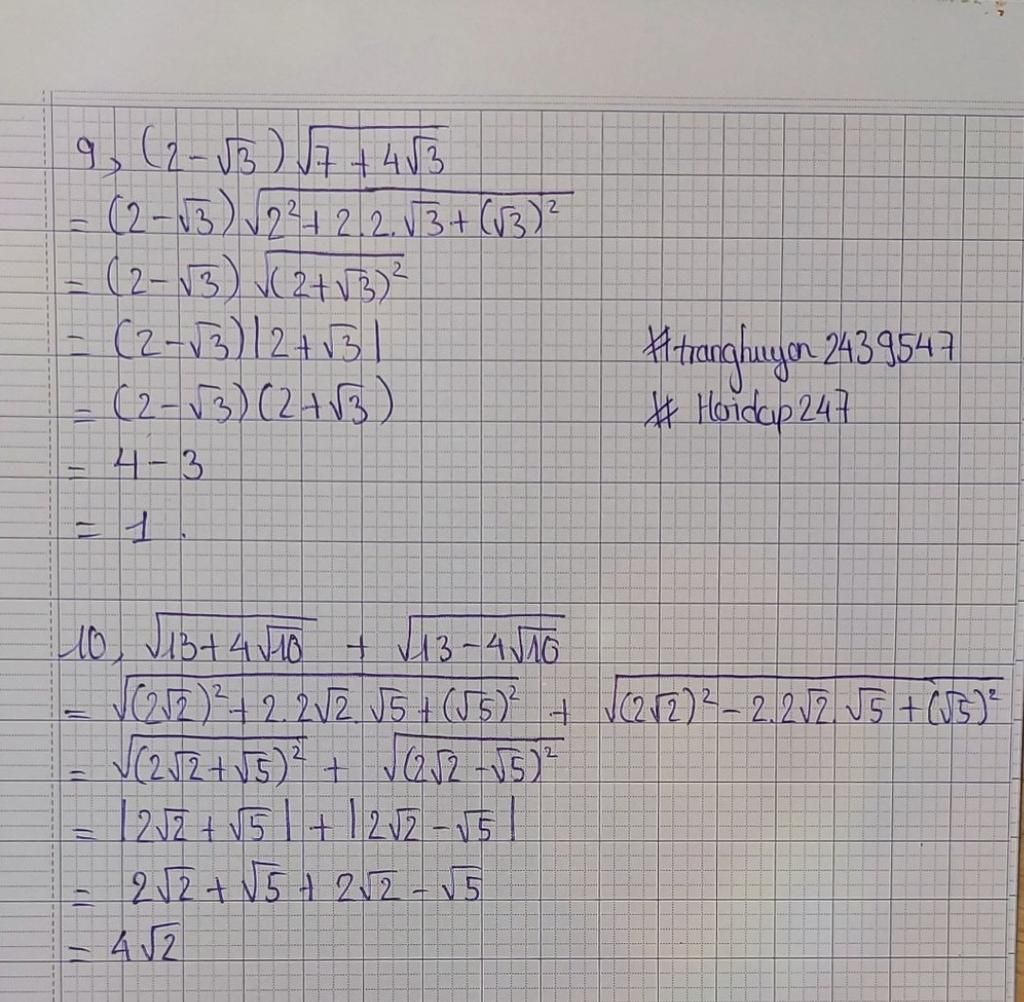 9, (2-√3)√(7+4√3)
= (2-√3)√(2²+2.2.√3+(√3)²)
= (2-√3)√((2+√3)²)
= (2-√3)|2+√3|
#tranghuyen2439547
= (2-√3)(2+√3)
# Hoidap247
= 4-3
= 1.
10, √(13+4√10) + √(13-4√10)
= √((2√2)²+2.2√2.√5+(√5)²) + √((2√2)²-2.2√2.√5+(√5)²)
= √((2√2+√5)²) + √((2√2-√5)²)
= |2√2+√5|+|2√2-√5|
= 2√2+√5+2√2-√5
= 4√2